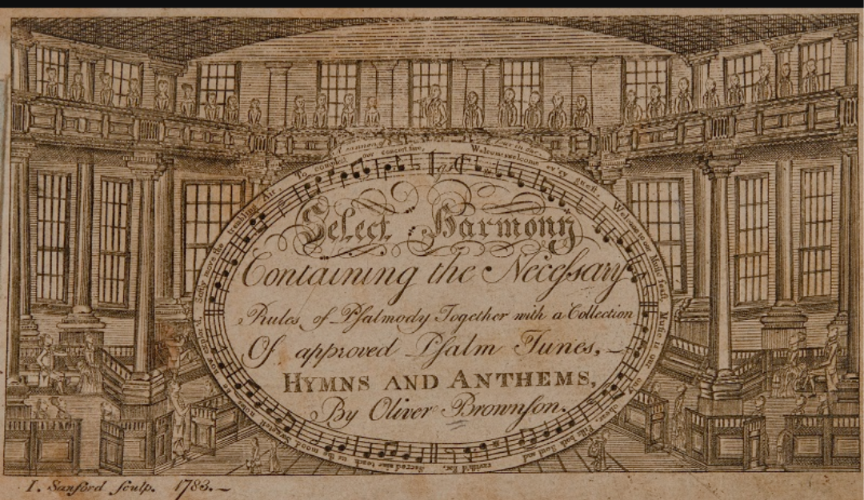 Welcome welcome ev'ry guest, Welcome to our Music feast, Music is our
Select Harmony
Containing the Neceſsary
Rules of Pſalmody Together with a Collection
Of approved Pſalm Tunes,
HYMNS AND ANTHEMS,
By Oliver Brownſon.
I. Sanford ſculp. 1783.